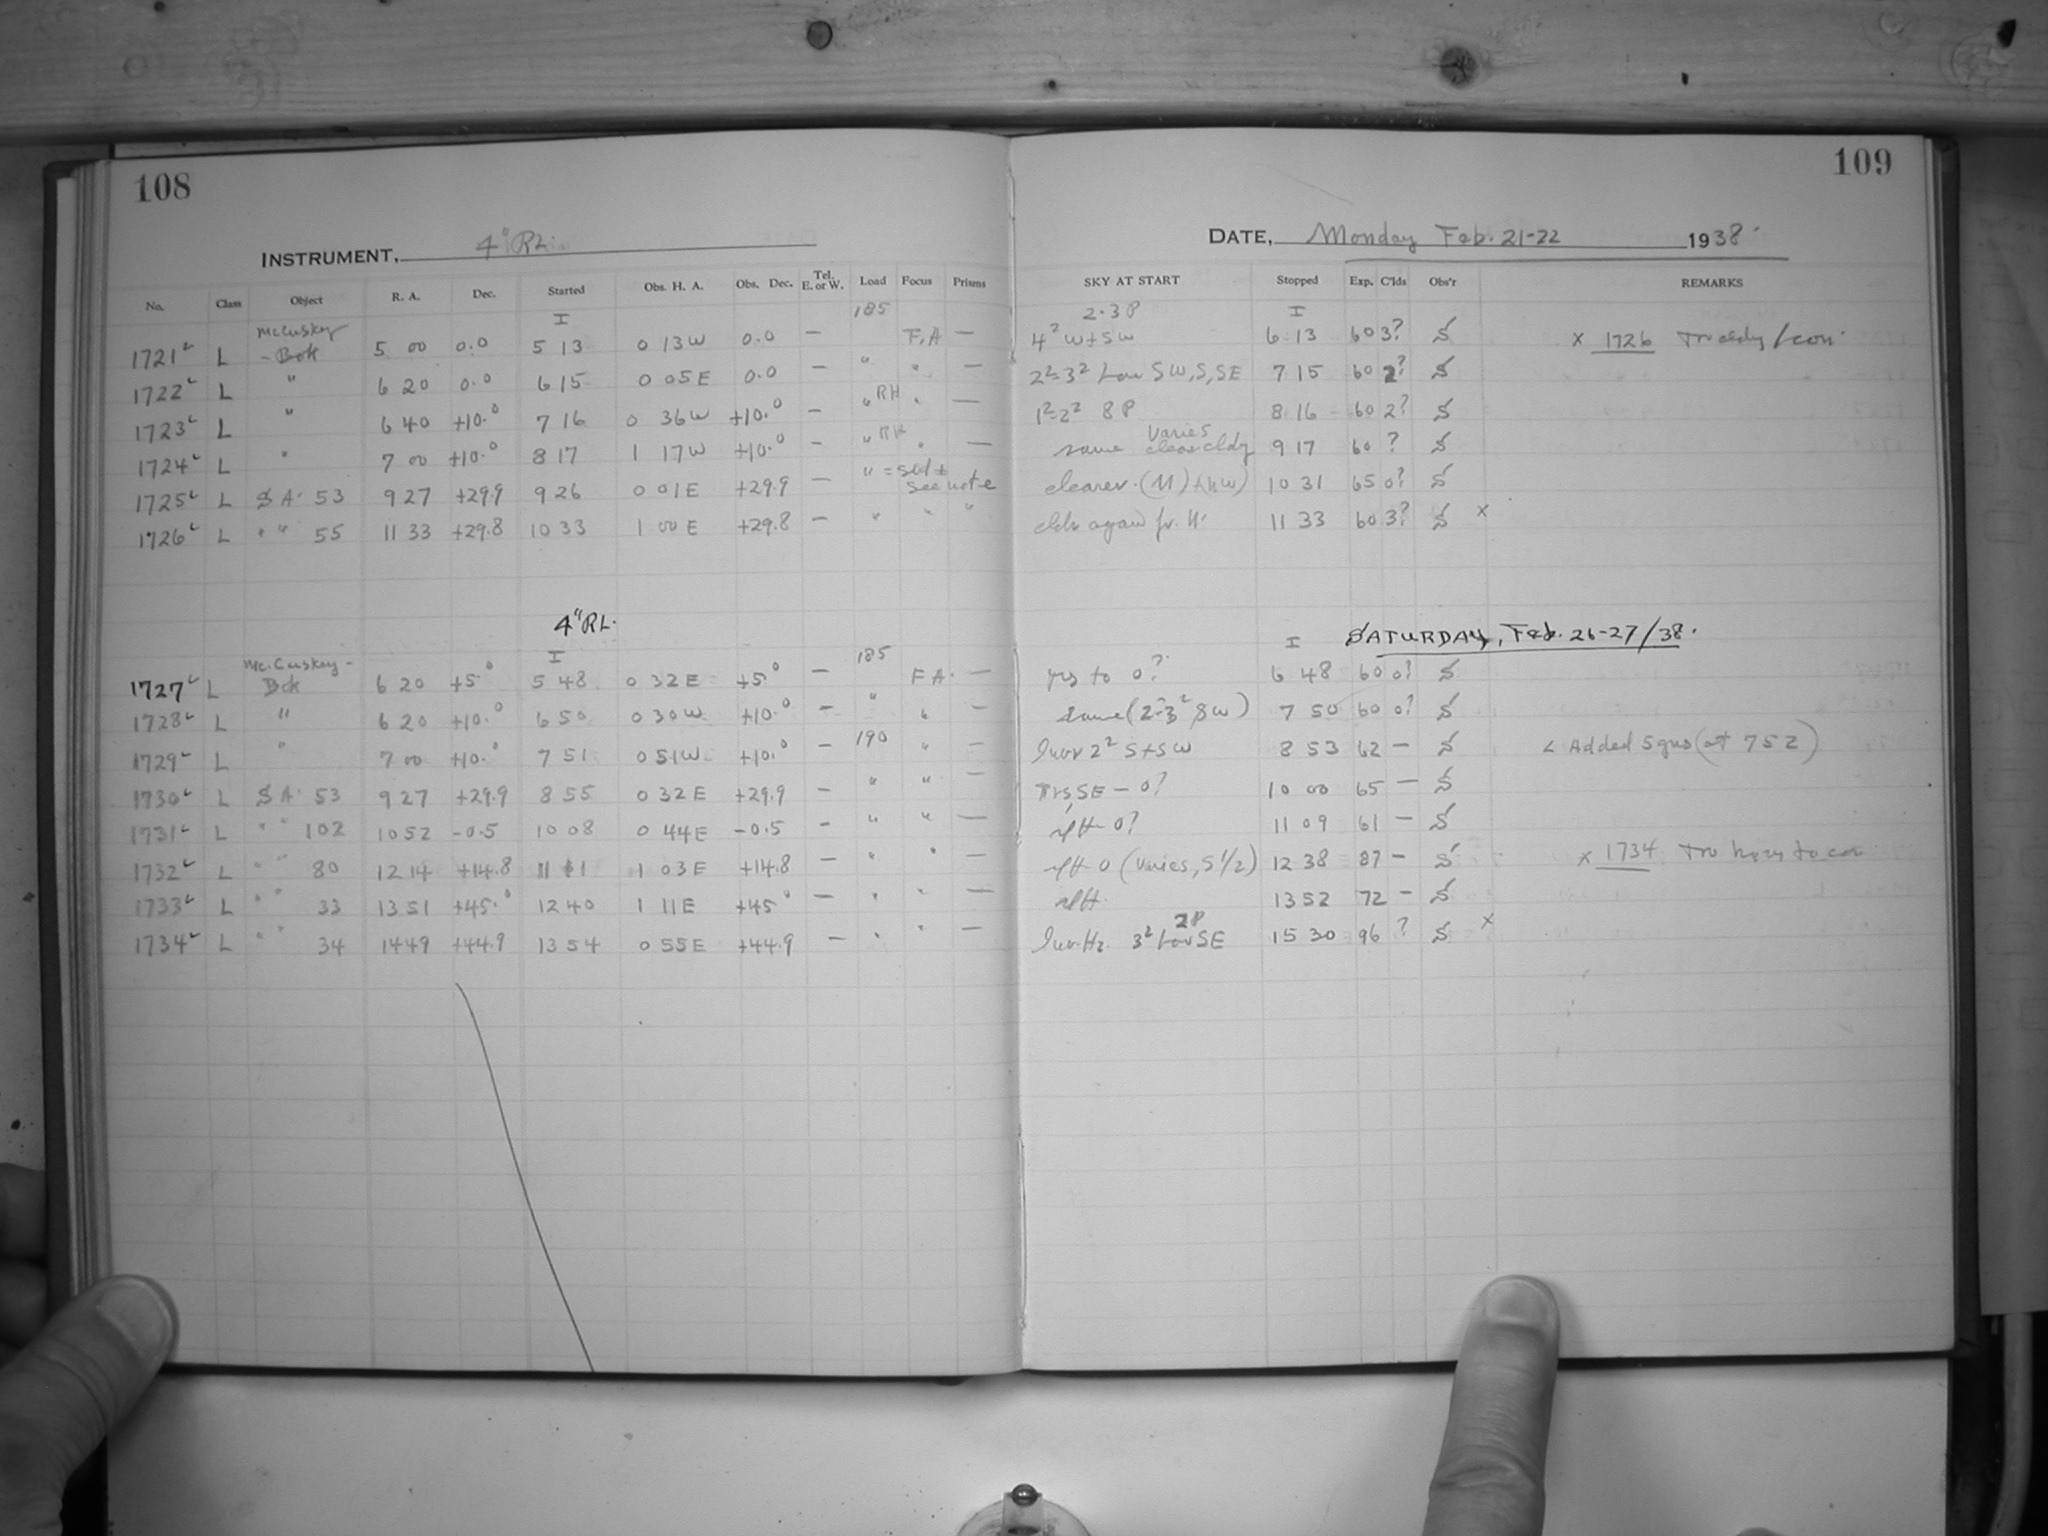 108
INSTRUMENT, 4" RL.
No. Class Object R. A. Dec. Started Obs. H. A. Obs. Dec. Tel. E. or W. Load Focus Prisms
I 185
McCuskey
1721 L - Bok 5 00 0.0 5 13 0 13 W 0.0 — F.A —
1722 L " 6 20 0.0 6 15 0 05 E 0.0 — " " —
1723 L " 6 40 +10.0 7 16 0 36 W +10.0 — " RH " —
1724 L " 7 00 +10.0 8 17 1 17 W +10.0 — " RH " —
1725 L S A. 53 9 27 +29.9 9 26 0 01 E +29.9 — " = see note
1726 L " " 55 11 33 +29.8 10 33 1 00 E +29.8 — " " "
4" RL.
I 185
McCuskey -
1727 L Bok 6 20 +5.0 5 48 0 32 E +5.0 — F A. —
1728 L " 6 20 +10.0 6 50 0 30 W +10.0 — " " —
1729 L " 7 00 +10.0 7 51 0 51 W +10.0 — 190 " —
1730 L S A. 53 9 27 +29.9 8 55 0 32 E +29.9 — " " —
1731 L " " 102 10 52 -0.5 10 08 0 44 E -0.5 — " " —
1732 L " " 80 12 14 +14.8 11 11 1 03 E +14.8 — " " —
1733 L " " 33 13 51 +45.0 12 40 1 11 E +45.0 — " " —
1734 L " " 34 14 49 +44.9 13 54 0 55 E +44.9 — " " —
109
DATE, Monday Feb. 21-22 1938.
SKY AT START Stopped Exp. C'lds Obs'r REMARKS
2.3 P I
4² W + SW 6 13 60 3? S x 1726
2²-3² Low SW, S, SE 7 15 60 2? S
1²-2² 8 P 8 16 60 2? S
same varies clear cldy 9 17 60 ? S
clearer 10 31 65 0? S
again fr. W. 11 33 60 3? S x
I SATURDAY, Feb. 26-27/38.
to 0? 6 48 60 0? S
same (2-3² SW) 7 50 60 0? S
2² S + SW 8 53 62 — S < Added 5 gms (at 7 52)
SE - 0? 10 00 65 — S
0? 11 09 61 — S
0 (varies, S 1/2) 12 38 87 — S x 1734
13 52 72 — S
2P
3² Low SE 15 30 96 ? S x